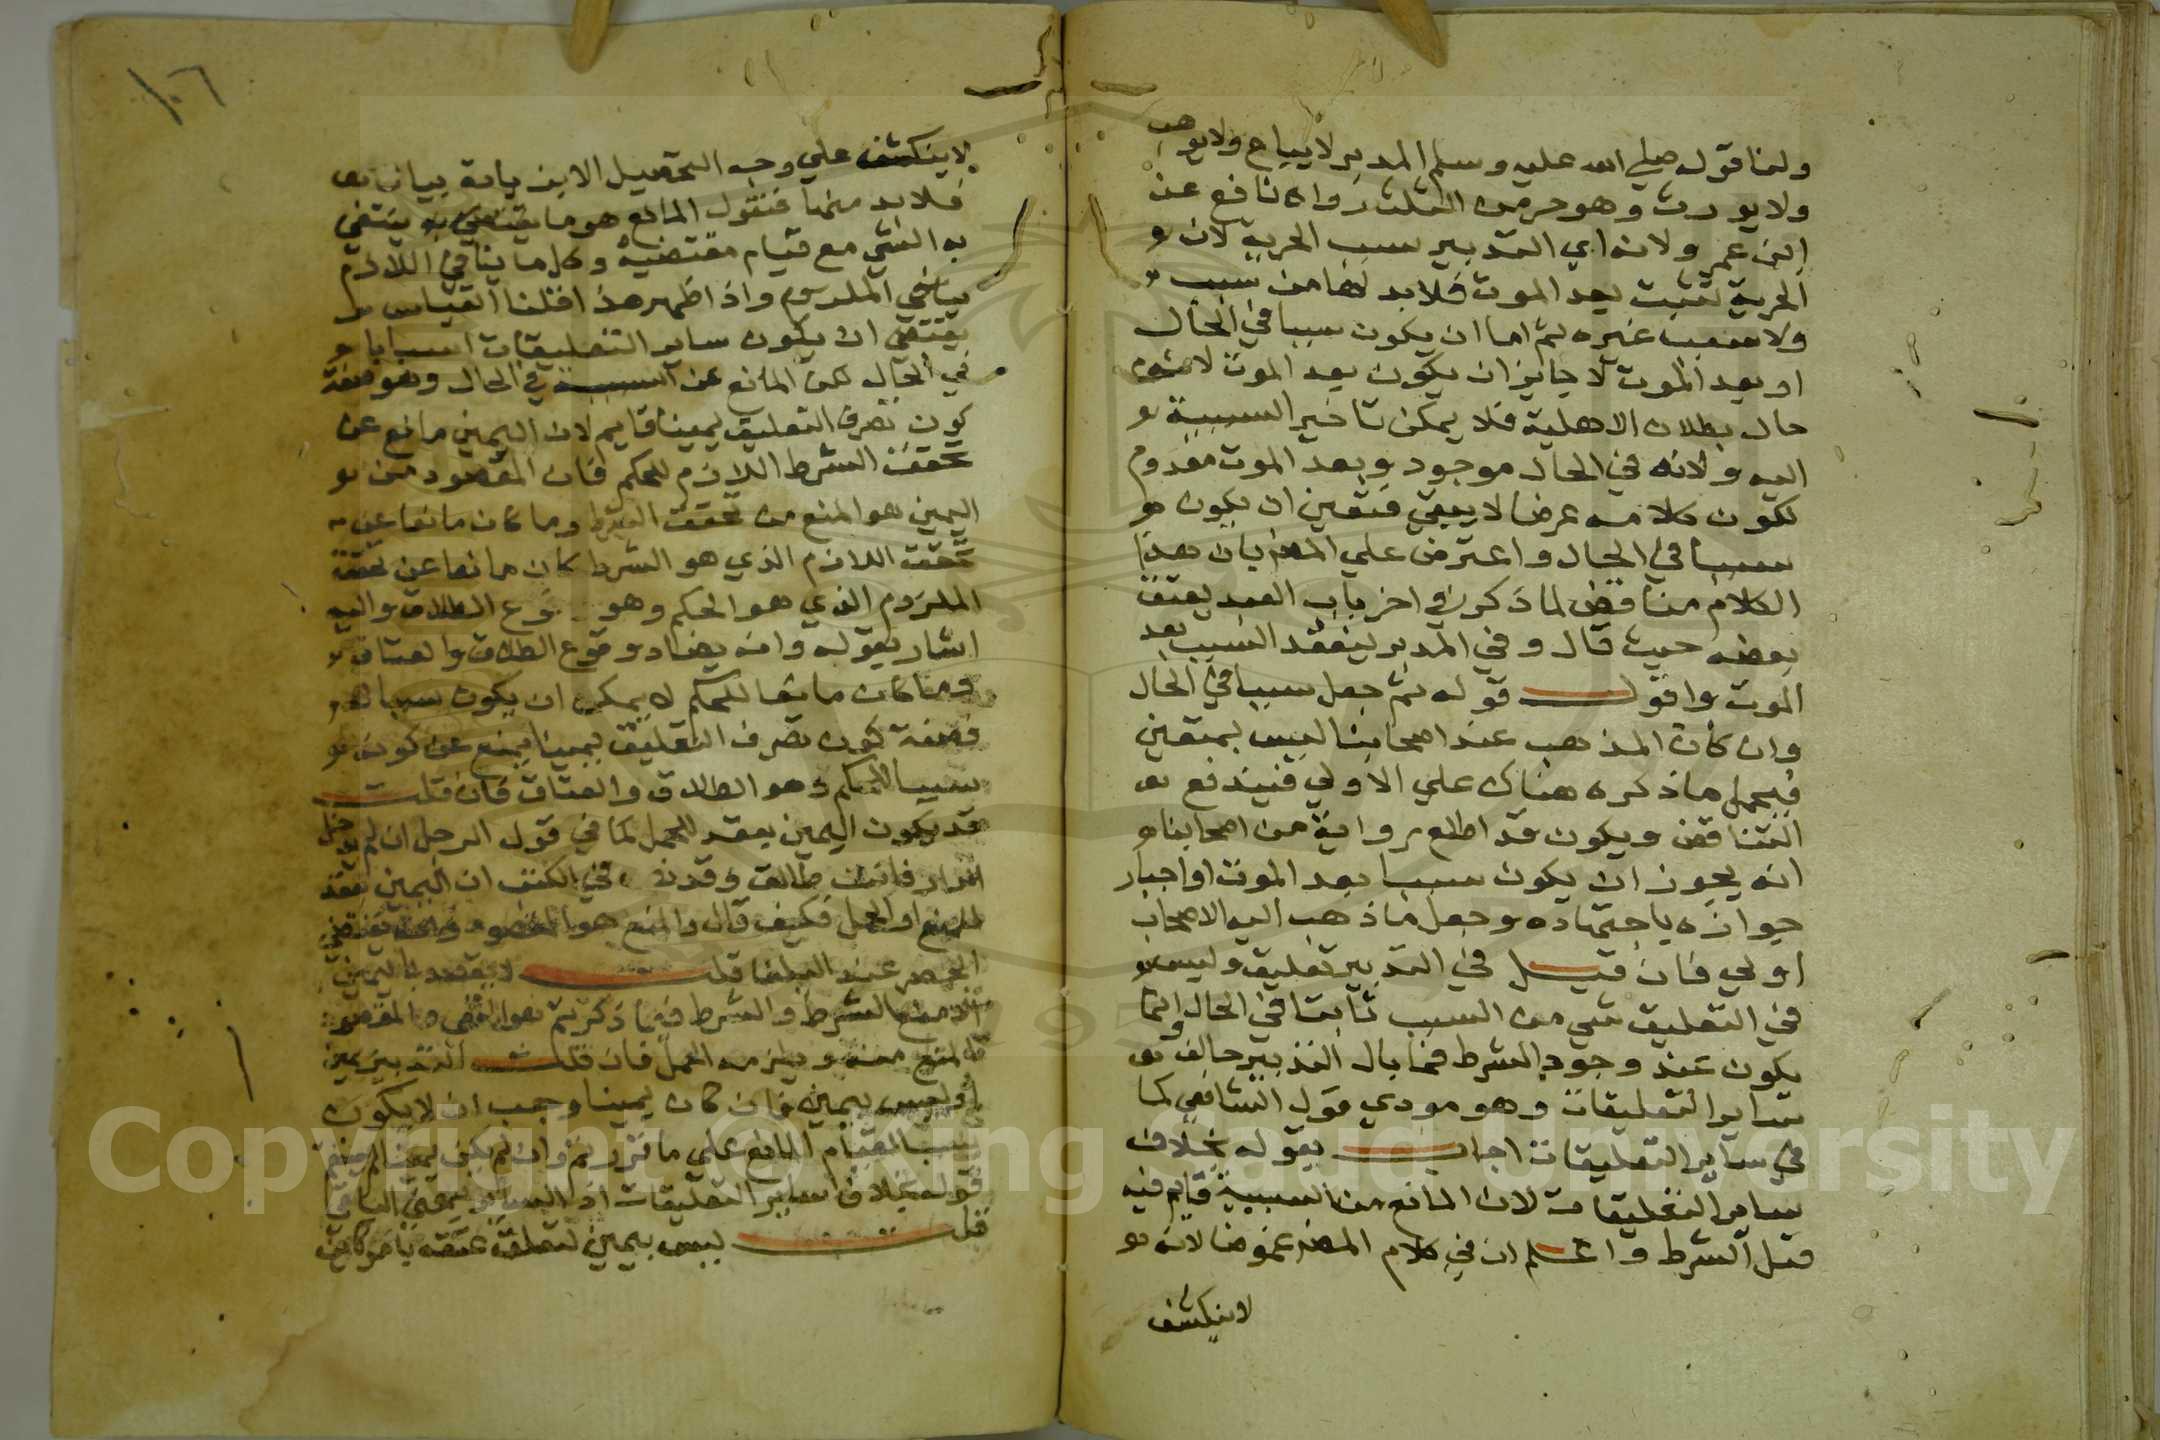 ولنا قوله صلي الله عليه وسلم المدبر لا يباع ولا يوهب
ولا يورث وهو حر من الثلث رواه نافع عن
ابن عمر ولانه اي التدبير سبب الحرية لان
الحرية تثبت بعد الموت فلا بد لها من سبب
ولا سبب غيره ثم اما ان يكون سببا في الحال
او بعد الموت لا جايز ان يكون بعد الموت لانه
حال بطلان الاهلية فلا يمكن تاخير السببية
اليه ولانه في الحال موجود وبعد الموت معدوم
لكون كلامه عرضا لا يبقي فتعين ان يكون
سببا في الحال واعترض علي المص بان هذا
الكلام مناقض لما ذكر في اخر باب العبد يعتق
بعضه حيث قال وفي المدبر ينعقد السبب بعد
الموت واقول قوله ثم جعل سببا في الحال
وان كان المذهب عند اصحابنا ليس بمتعين
فيحمل ما ذكره هناك علي الاولي فيندفع
التناقض ويكون قد اطلع رواية من اصحابنا
انه يجوز ان يكون سببا بعد الموت او اختار
جوازه باجتهاده وجعل ما ذهب اليه الاصحاب
اولي فان قيل في التدبير تعليق وليس
في التعليق شي من السبب ثابتا في الحال وانما
يكون عند وجود الشرط فما بال التدبير خالف
ساير التعليقات وهو مودي قول الشافعي كما
في ساير التعليقات اجاب بقوله بخلاف
ساير التعليقات لان المانع من السببية قايم فيه
قبل الشرط واعلم ان في كلام المص غموضا لانه
لا ينكشف
١٠٦
لا ينكشف علي وجه التحصيل الا بزيادة بيان
فلا بد منها فنقول المانع هو ما ينتفي
به الشي مع قيام مقتضيه وكل ما ينافي اللازم
ينافي الملزوم واذا ظهر هذا قلنا القياس
يقتضي ان يكون ساير التعليقات اسبابا
في الحال لكن المانع عن السببية في الحال وهو صفة
كون تصرف التعليق يمينا قايم لان اليمين مانع عن
تحقق الشرط اللازم للحكم فان المقصود من
اليمين هو المنع من تحقق الشرط وما كان مانعا عن
تحقق اللازم الذي هو الشرط كان مانعا عن تحقق
الملزوم الذي هو الحكم وهو وقوع الطلاق واليه
اشار بقوله وانه يضاد وقوع الطلاق والعتاق
وما كان مانعا للحكم لا يمكن ان يكون سببا له
فصفة كون تصرف التعليق يمينا يمنع عن كونه
سببا للحكم وهو الطلاق والعتاق فان قلت
قد يكون اليمين يعقد للحمل كما في قول الرجل ان لم ادخل
الدار فانت طالق وقد في الكتب ان اليمين تعقد
للمنع او الحمل فكيف قال والمنع هو المقصود
الحصر عند البلغا قلت لا يعقد باليمين
الا منع الشرط والشرط فيما ذكرتم هو النفي والمقصود
المنع منه ويلزمه الحمل فان قلت التدبير يمين
او ليس بيمين فان كان يمينا وجب ان لا يكون
سببا لقيام المانع علي ما قررتم وان لم يكن يمينا لم يصح
قوله بخلاف ساير التعليقات اذ الساير بمعني الباقي
قلت ليس بيمين لتعلق عتقه بامر كاين